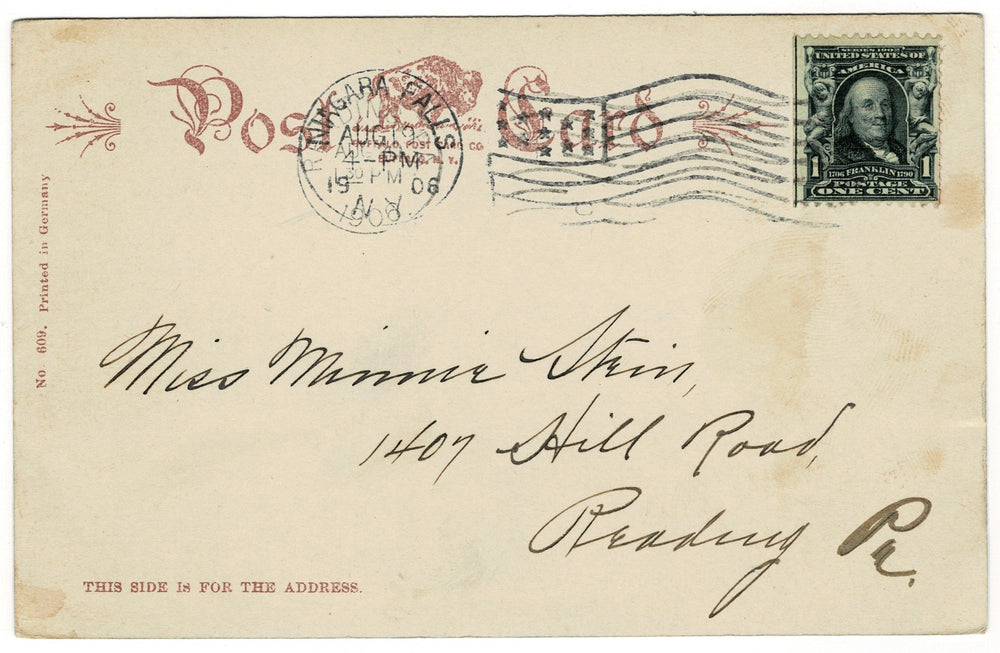 Post Card
SERIES 1902
UNITED STATES OF
AMERICA
1 1
1706 FRANKLIN 1790
POSTAGE
ONE CENT
NIAGARA FALLS
AUG 19
4 - PM
30 PM
19 06
N.Y.
1906
BUFFALO, POST CARD CO.
N. Y.
No. 609. Printed in Germany
Miss Minnie Stein,
1407 Hill Road,
Reading Pa.
THIS SIDE IS FOR THE ADDRESS.